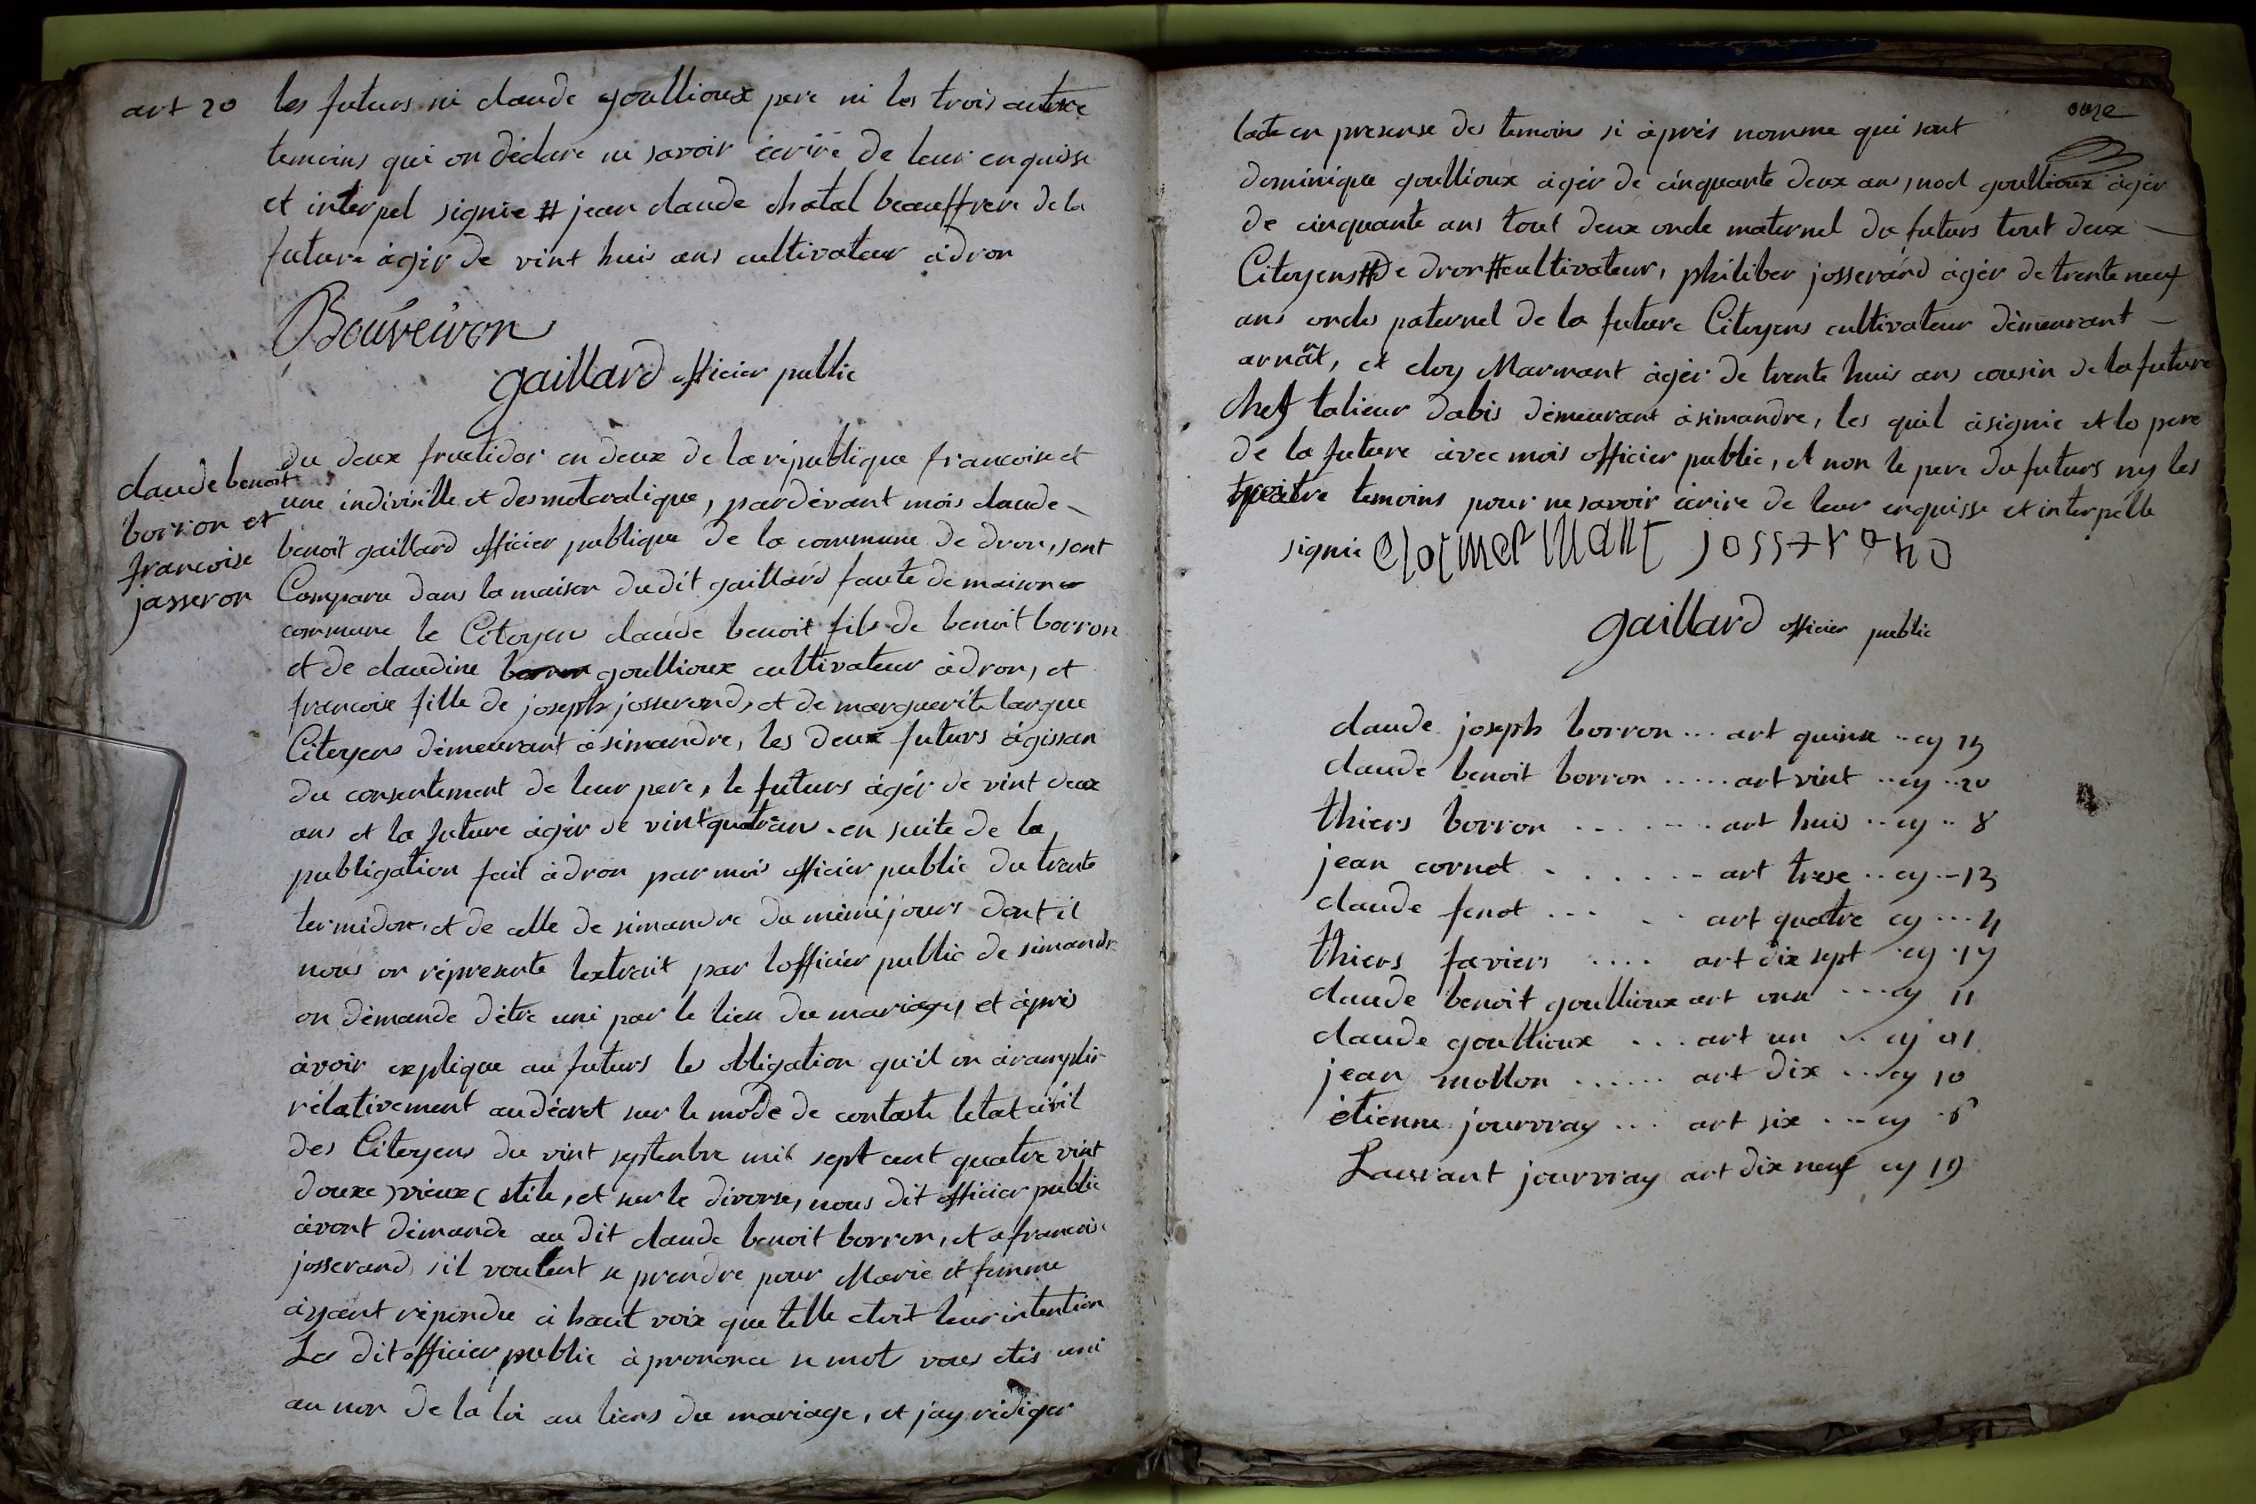 art 20 les futurs ni claude goullioux pere ni les trois autre
temoins qui on déclare ne savoir écrire de leur enquisse
et interpel signie # jean claude chatal beauffrere de la
future âgér de vint huis ans cultivateur àdron
Bouveiron
gaillard officier public
claude benoit
borron et
francoise
jasseron
du deux fructidor en deux de la république francoise et
une indivisille et desmotaralique, pardévant mois claude
benoit gaillard officier publique de la commune de dron, sont
Comparu dans la maison dudit gaillard faute de maison
commune le Citoyen claude benoit fils de benoit borron
et de claudine goullioux cultivateur àdron, et
francoise fille de joseph josserand, et de marguerite largue
Citoyens démeurant à simandre, les deux futurs ágissan
du consentement de leur pere, le futurs âgér de vint deux
ans et la future âgér de vint quatrans. en suite de la
publigation fait àdron par mois officier public du trente
termidor, et de celle de simandre du mémé jours dont il
nous on répresente lextrait par lofficier public de simandre
on démande détre uni par le lien du mariage, et àprés
àvoir explique au futurs les obligation quil on àramplir
rélativement au décret sur le mode de contaste letat civil
des Citoyens du vint septenbre mil sept cent quatre vint
douxe )vieux( stile, et sur le divorse, nous dit officier public
àvont démande au dit claude benoit borron, et a francoise
josserand, sil voulent se prendre pour Marié et femme
àyant répondu à haut voix que telle etoit leur intention
Le dit officier public à prononce se mot vous etis uni
au non de la loi au liens du mariage, et jay rédiger
onze
lacte en presense des temoins si àprés nomme qui sont
dominique goullioux âgér de cinquante deux ans, noel goullioux âgér
de cinquante ans tout deux oncle maternel du futurs tout deux
Citoyens # de dron # cultivateur, philiber josserand âgér de trente neuf
ans oncles paternel de la future Citoyens cultivateur démeurant
arnât, et eloy Marmant âgér de trente huis ans cousin de la future
chef talieur dabis démeurant àsimandre, les quil àsignie et le pere
de la future àvec mois officier public, et non le pere du futurs ny les
quatre temoins pour ne savoir écrire de leur enquisse et interpélle
signie eloi mermant josserand
gaillard officier public
claude joseph borron ... art quinse .. cy 15
claude benoit borron ..... art vint .. cy .. 20
thiers borron ....... art huis .. cy .. 8
jean cornet ...... art trese .. cy - 13
claude fenot ..... art quatre cy ... 4
thiers faviers .... art dix sept . cy . 17
claude benoit goullioux art onse ... cy 11
claude goullioux ... art un .. cy 01
jean mollon ...... art dix ... cy 10
étienne jourvray ... art six ... cy . 6
Laurant jourvray art dix neuf cy 19